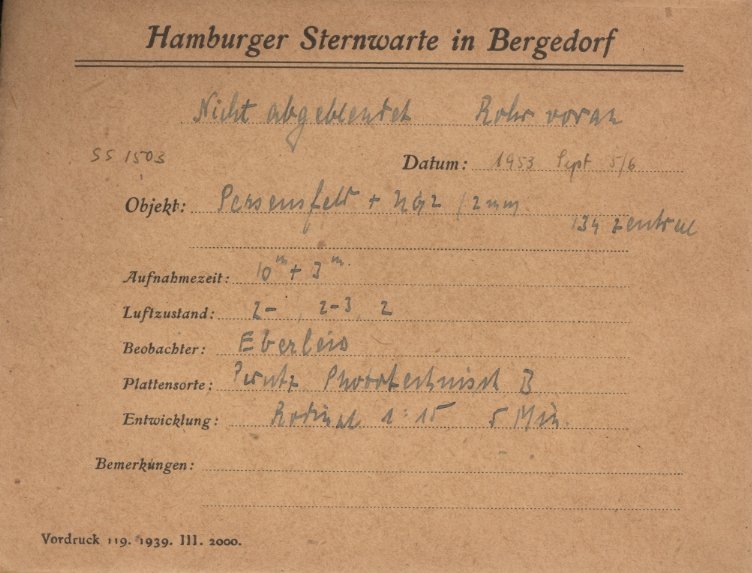 Hamburger Sternwarte in Bergedorf
Nicht abgeblendet Rohr voran
SS 1503
Datum: 1953 Sept 5/6
Objekt: Perseusfeld + 2mm
134 zentral
Aufnahmezeit: 10ᵐ + 3ᵐ
Luftzustand: 2-, 2-3, 2
Beobachter:
Plattensorte: Perutz Phototechnisch B
Entwicklung: Rodinal 1:15 5 Min.
Bemerkungen:
Vordruck 119. 1939. III. 2000.